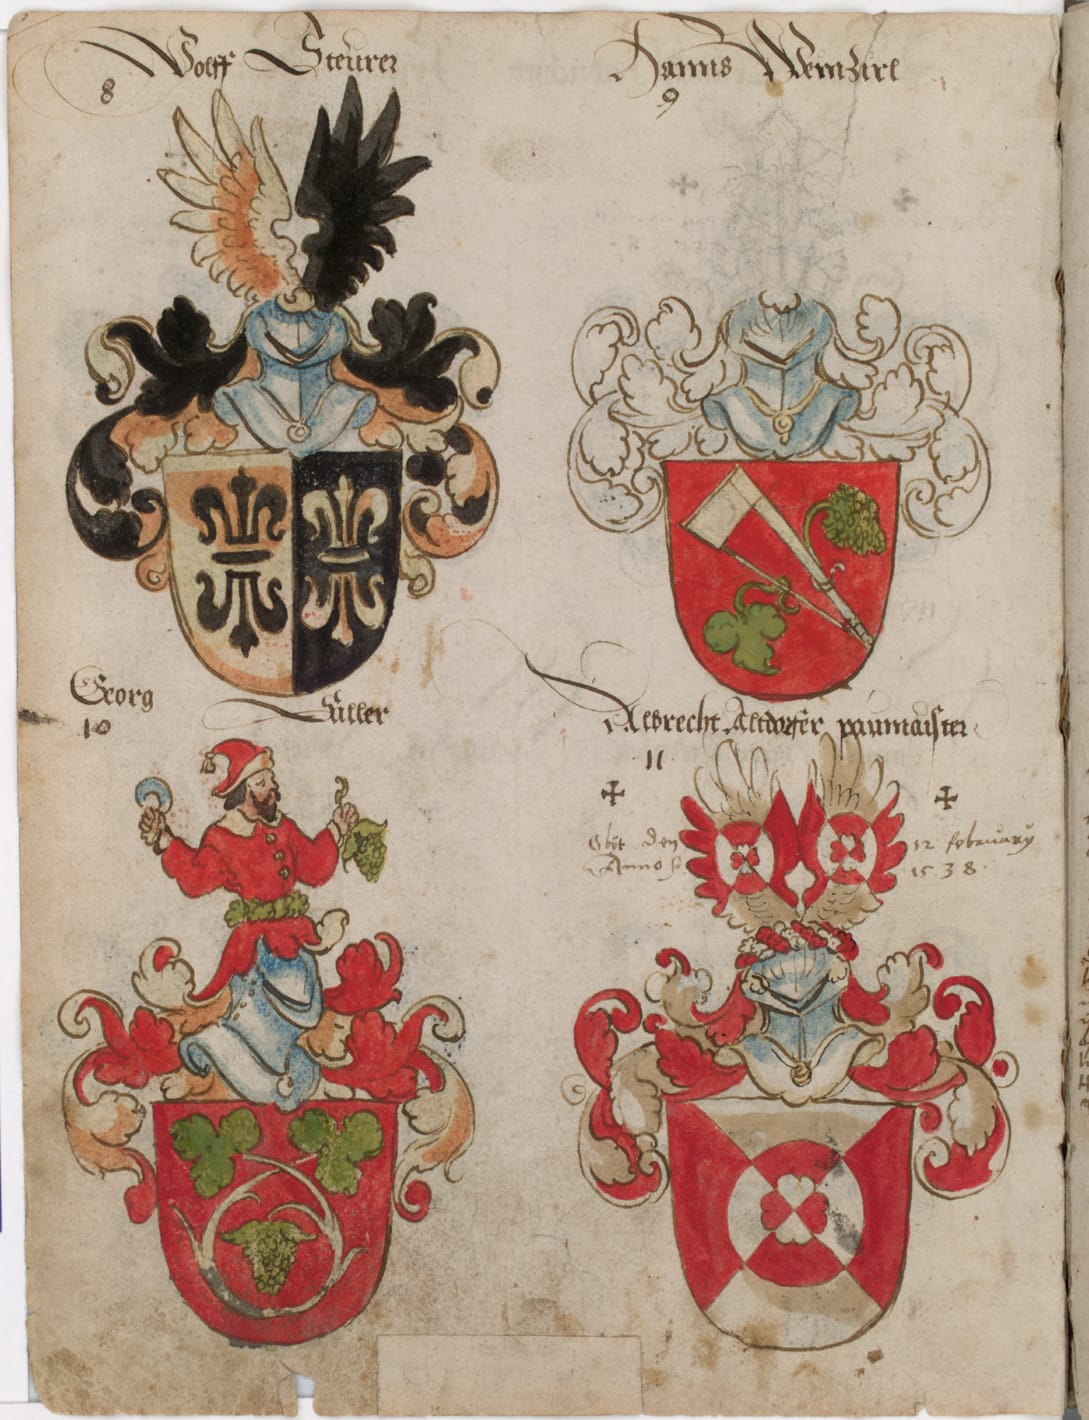 Wolff Steurer
8
Hanns Weinzirl
9
Georg
10
Albrecht Altdorfer paumaister
11
Obijt den 12 february
Anno 1538.